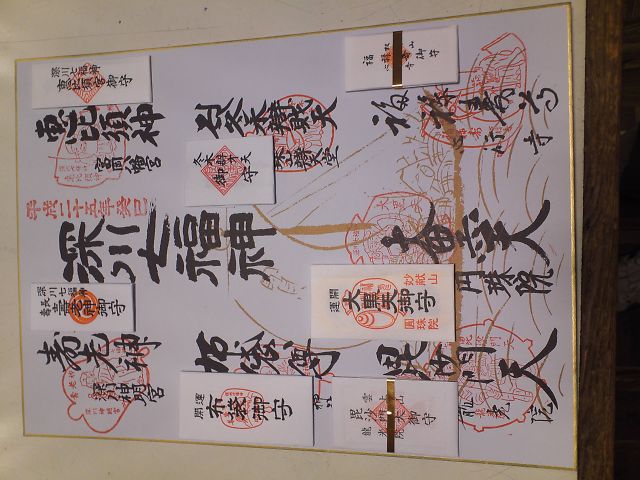 深川七福神
恵比須宮御守
恵比須神
富岡八幡宮
平成二十五年癸巳
深川七福神
深川七福神
寿老神御守
寿老神
深川神明宮
冬木弁才天
御守
冬木弁天堂
布袋尊
開運
布袋御守
福禄寿
心行寺
大黒天
円珠院
開運
大黒天御守
妙嶽山
圓珠院
毘沙門天
龍光院
毘沙門天御守
龍光院